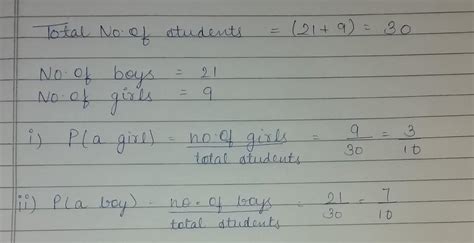 Total No. of students = (21 + 9) = 30
No. of boys = 21
No. of girls = 9
i) P(a girl) = no. of girls / total students = 9/30 = 3/10
ii) P(a boy) - no. of boys / total students = 21/30 = 7/10